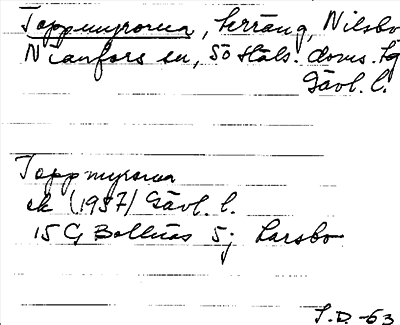 Toppmyrorna, terräng, Nilsbo
Nianfors sn, Sö Häls. doms. tg
Gävl. l.
Toppmyrorna
ek (1957) Gävl. l.
15 G Bollnäs 5 j Larsbo
S.D. -63